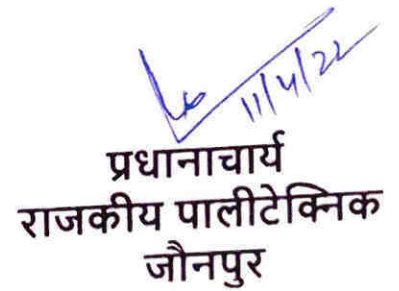 11/4/22
प्रधानाचार्य
राजकीय पालीटेक्निक
जौनपुर